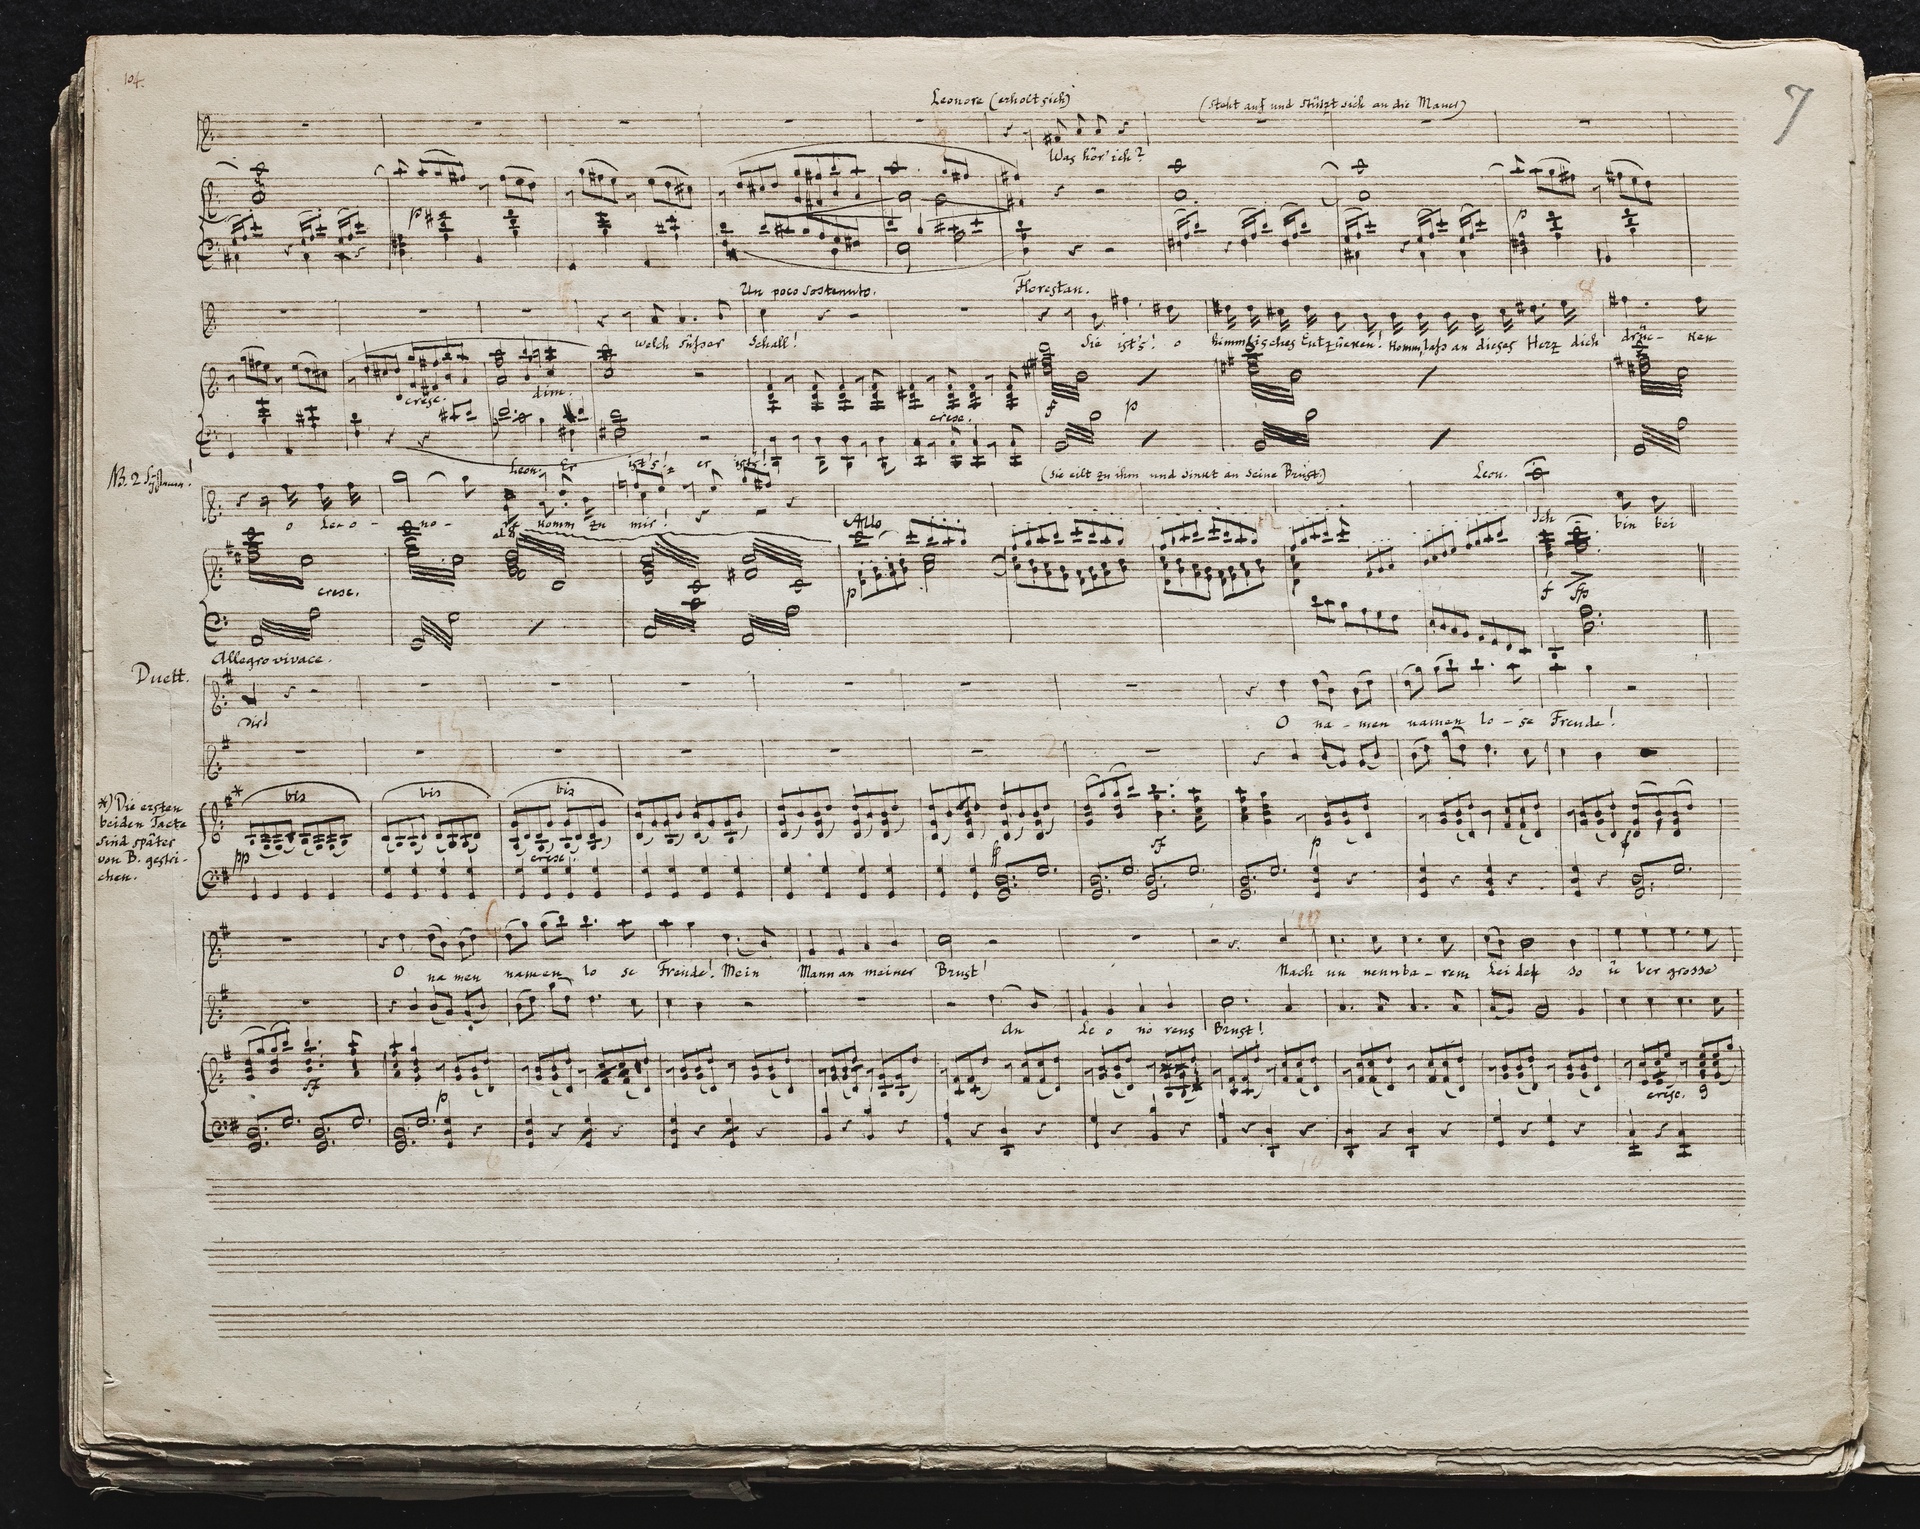 104.
7
Leonore (erholt sich)
(steht auf und stützt sich an die Mauer)
Was hör' ich?
p
p
Un poco sostenuto.
Florestan.
8
welch süßer Schall!
Sie ist's! o himmlisches Entzücken! Komm, laß an dieses Herz dich drük- ken
cresc.
dim.
cresc.
f
p
NB. 2 Systeme!
Leon. Er ist's! er ist's!
(sie eilt zu ihm und sinkt an seine Brust)
Leon.
o Leo- no- komm zu mir!
Ich bin bei
All⁰
cresc.
p
f
sfp
Allegro vivace.
Duett.
dir!
O na - men namen lo - se Freude!
2
*) Die ersten
beiden Tacte
sind später
von B. gestri-
chen.
*
bis
bis
bis
pp
cresc.
sf
p
f
10
O na men namen lo se Freude! Mein Mann an meiner Brust!
Nach un nennba - rem Lei den so ü ber grosse
An Le o no rens Brust!
sf
p
cresc.